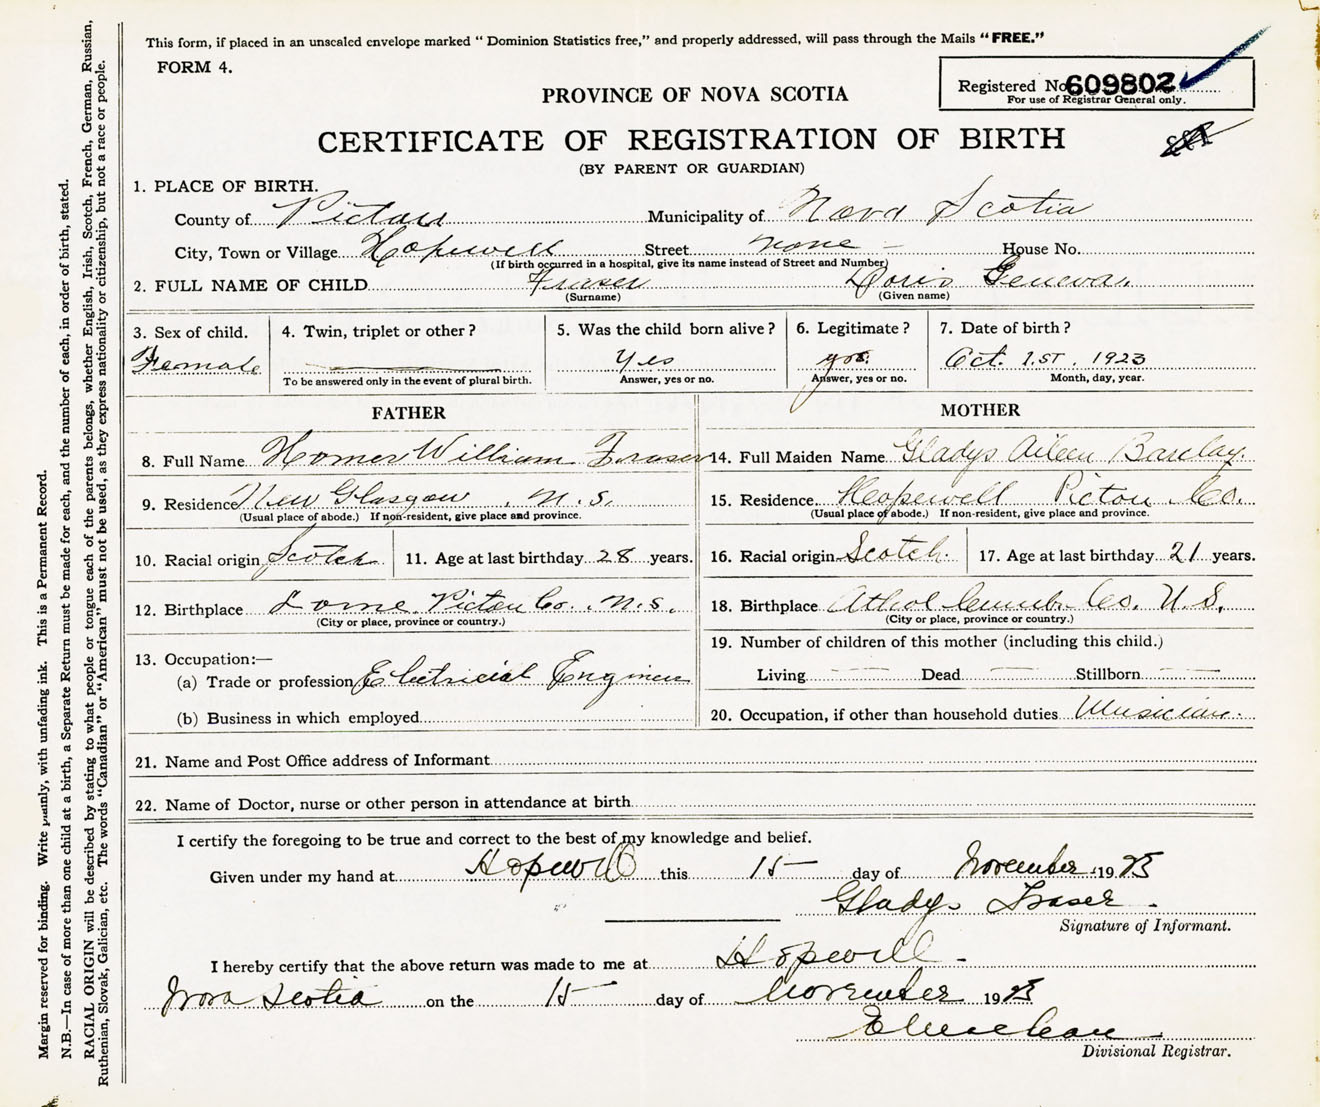 This form, if placed in an unscaled envelope marked " Dominion Statistics free," and properly addressed, will pass through the Mails "FREE."
FORM 4.
Registered No 609802
For use of Registrar General only.
PROVINCE OF NOVA SCOTIA
CERTIFICATE OF REGISTRATION OF BIRTH
(BY PARENT OR GUARDIAN)
1. PLACE OF BIRTH.
County of Pictou Municipality of Nova Scotia
City, Town or Village Hopewell Street none - House No.
(If birth occurred in a hospital, give its name instead of Street and Number)
2. FULL NAME OF CHILD Fraser Doris Geneva.
(Surname) (Given name)
3. Sex of child. 4. Twin, triplet or other? 5. Was the child born alive? 6. Legitimate? 7. Date of birth?
Female Yes yes. Oct. 1.ST. 1923
To be answered only in the event of plural birth. Answer, yes or no. Answer, yes or no. Month, day, year.
FATHER
8. Full Name Homer William Fraser
9. Residence New Glasgow, N.S.
(Usual place of abode.) If non-resident, give place and province.
10. Racial origin Scotch 11. Age at last birthday 28 years.
12. Birthplace Lorne Pictou Co. N.S.
(City or place, province or country.)
13. Occupation:—
(a) Trade or profession Electricial Engineer
(b) Business in which employed
MOTHER
14. Full Maiden Name Gladys Aileen Barclay.
15. Residence Hopewell Pictou Co.
(Usual place of abode.) If non-resident, give place and province.
16. Racial origin Scotch. 17. Age at last birthday 21 years.
18. Birthplace Athol Cumb. Co. N.S.
(City or place, province or country.)
19. Number of children of this mother (including this child.)
Living Dead Stillborn
20. Occupation, if other than household duties Musician.
21. Name and Post Office address of Informant
22. Name of Doctor, nurse or other person in attendance at birth
I certify the foregoing to be true and correct to the best of my knowledge and belief.
Given under my hand at Hopewell this 15 day of November 1923
Gladys Fraser.
Signature of Informant.
I hereby certify that the above return was made to me at Hopewell -
Nova Scotia on the 15 day of November 1923
Divisional Registrar.
Margin reserved for binding. Write plainly, with unfading ink. This is a Permanent Record.
N.B.—In case of more than one child at a birth, a Separate Return must be made for each, and the number of each, in order of birth, stated.
RACIAL ORIGIN will be described by stating to what people or tongue each of the parents belongs, whether English, Irish, Scotch, French, German, Russian,
Ruthenian, Slovak, Galician, etc. The words "Canadian" or "American" must not be used, as they express nationality or citizenship, but not a race or people.